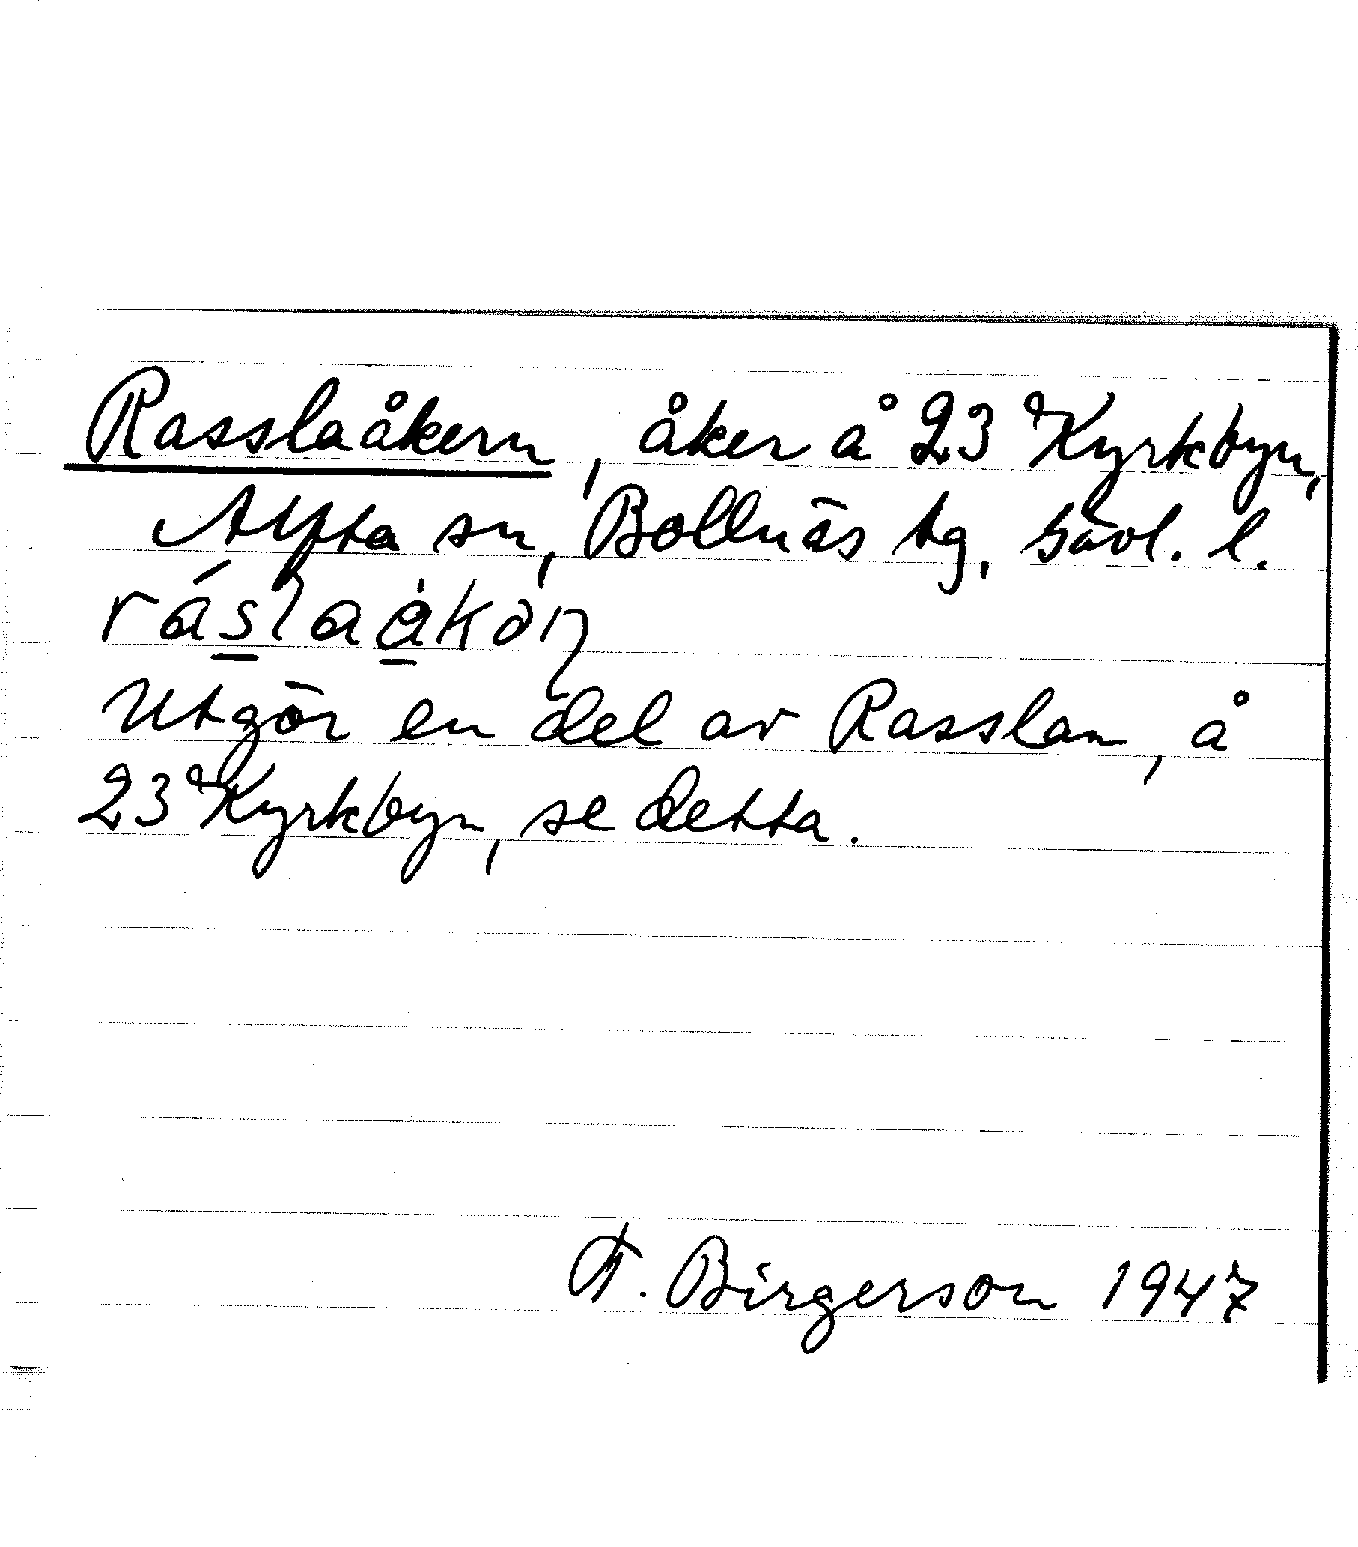 Rasslaåkern, åker å 23 Kyrkbyn,
Alfta sn, Bollnäs tg, Gävl. l.
ráslaàkəɳ
Utgör en del av Rasslan, å
23 Kyrkbyn, se detta.
F. Birgerson 1947